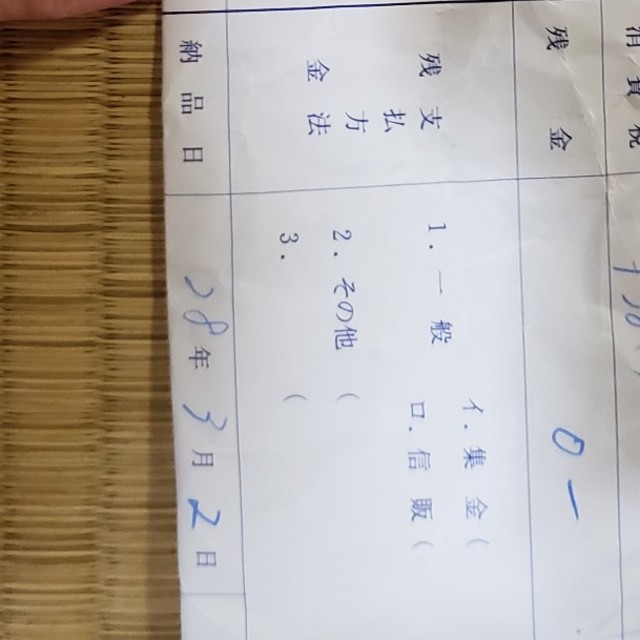 消費税
残金 0 -
残金 支払方法
1. 一般 イ. 集金 (
ロ. 信販 (
2. その他 (
3. (
納品日 28年3月2日